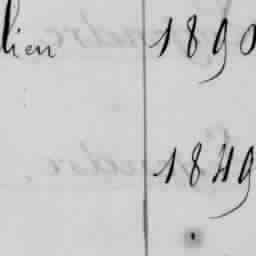 lien 1890
1849